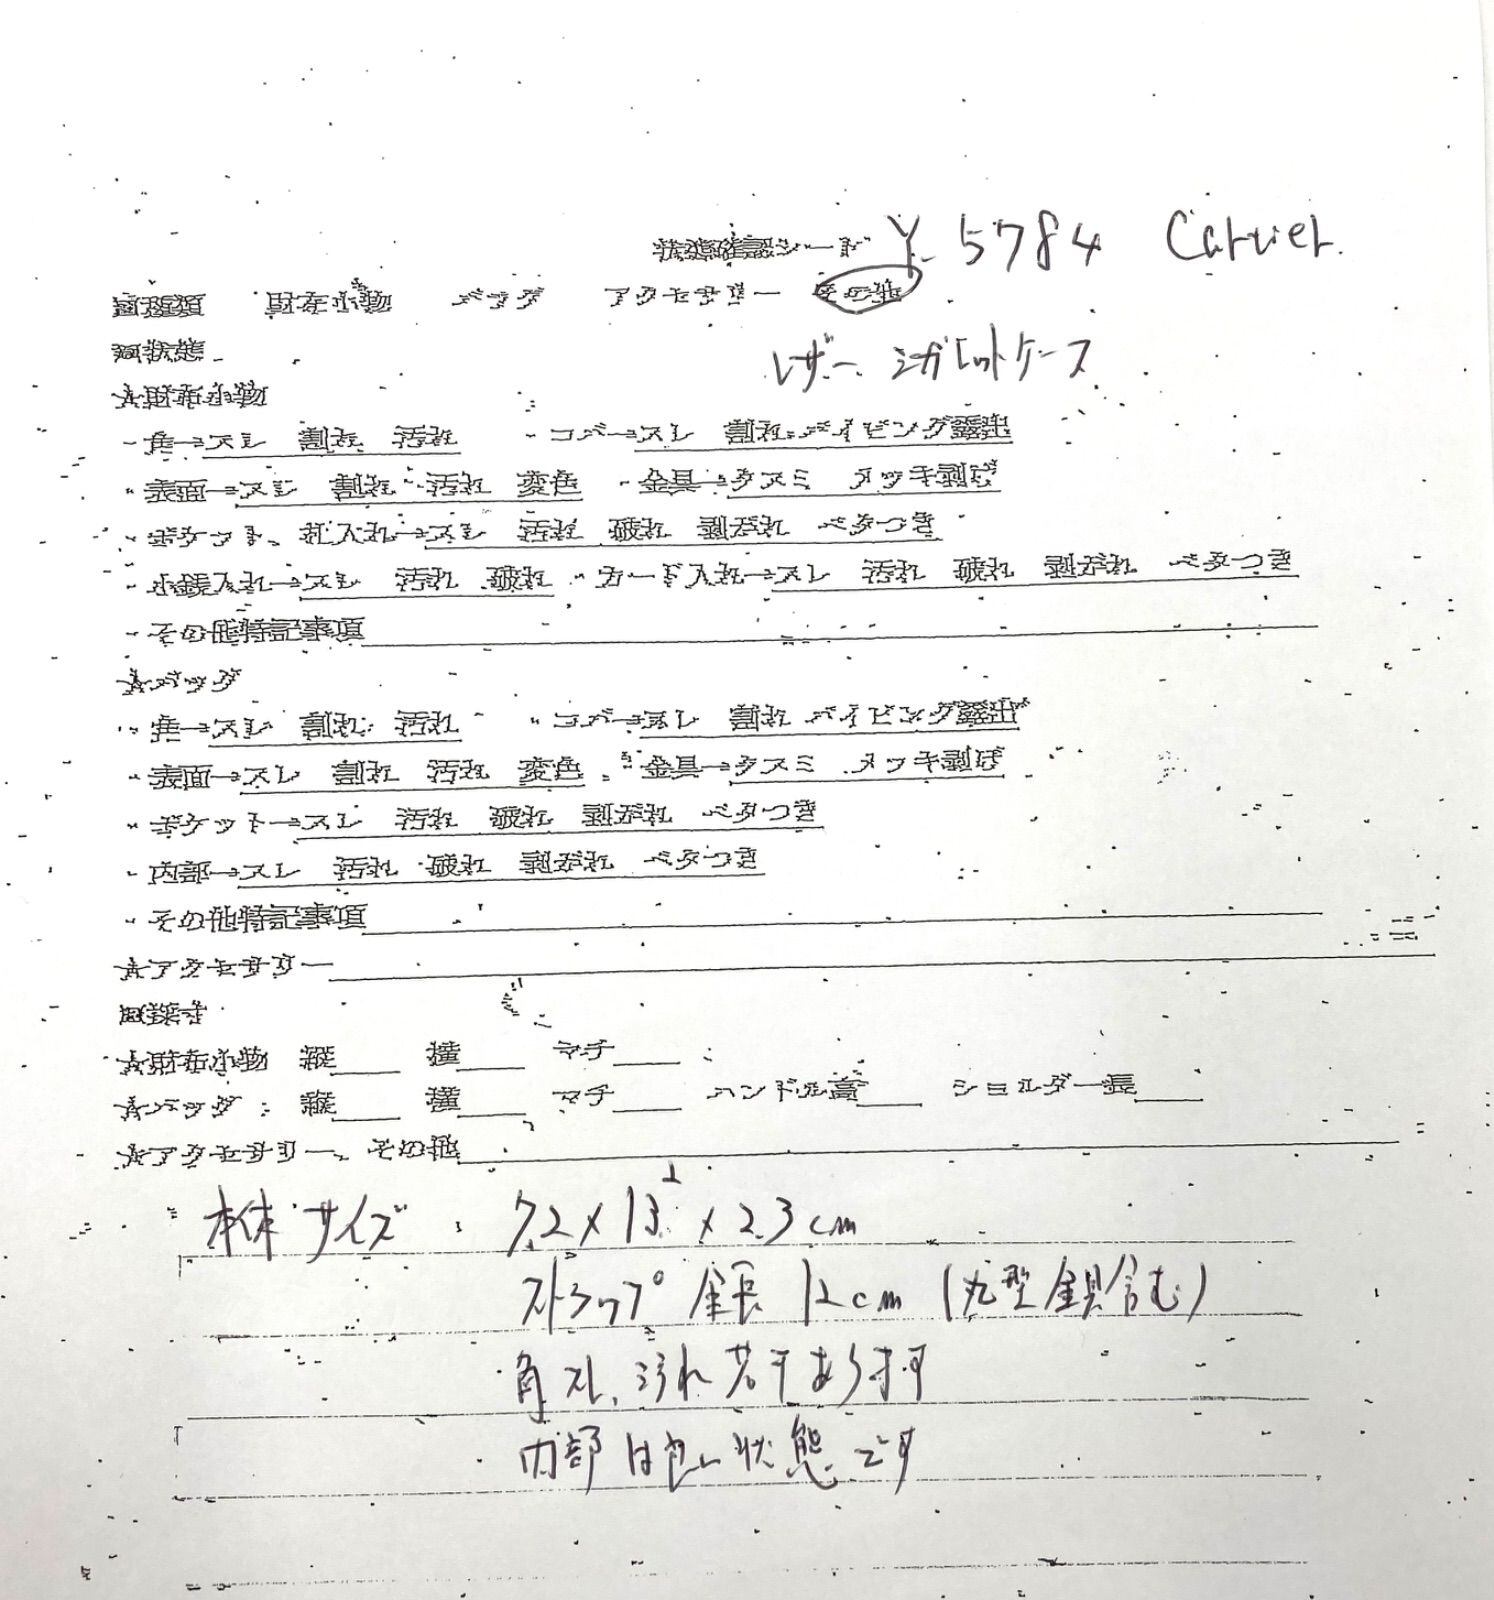 状態確認シート Y-5784 Cartier
■種類 財布小物 バッグ アクセサリー その他
■状態 レザー シガレットケース
☆財布小物
・角→スレ 割れ 汚れ ・コバ→スレ 割れ パイピング露出
・表面→スレ 割れ 汚れ 変色 ・金具→クスミ メッキ剥げ
・ポケット、札入れ→スレ 汚れ 破れ 剥がれ ベタつき
・小銭入れ→スレ 汚れ 破れ ・カード入れ→スレ 汚れ 破れ 剥がれ ベタつき
・その他特記事項
☆バッグ
・角→スレ 割れ 汚れ ・コバ→スレ 割れ パイピング露出
・表面→スレ 割れ 汚れ 変色 ・金具→クスミ メッキ剥げ
・ポケット→スレ 汚れ 破れ 剥がれ ベタつき
・内部→スレ 汚れ 破れ 剥がれ ベタつき
・その他特記事項
☆アクセサリー
■採寸
☆財布小物 縦 横 マチ
☆バッグ 縦 横 マチ ハンドル高 ショルダー長
☆アクセサリー、その他
本体サイズ 7.2×13.2×2.3cm
ストラップ 全長 12cm (丸型金具含む)
角スレ、汚れ若干あります
内部は良い状態です